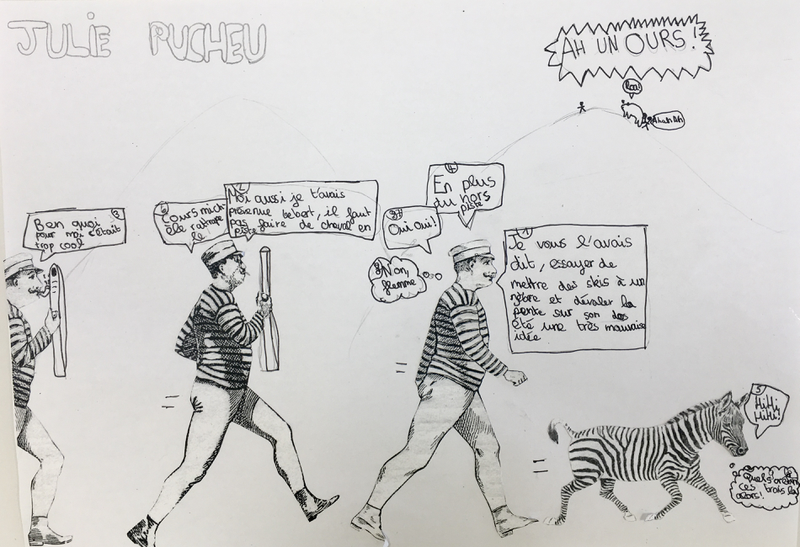 JULIE PUCHEU
AH UN OURS!
Ben quoi
pour moi c'était
trop cool
2
6
Cours mich-
èle rattrape
le
Moi aussi je t'avais
prévenue bebert, il faut
pas faire de cheval en
piste
4
En plus
du hors
piste
Oui oui!
Non,
flemme
1
Je vous l'avais
dit, essayer de
mettre des skis à un
zèbre et dévaler la
pente sur son dos
été une très mauvaise
idée
5
HiHi
HiHi!
Quels
ces trois là
alors!